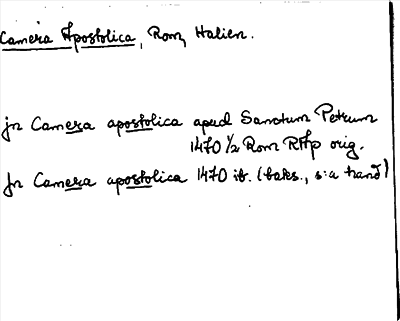 Camera Apostolica, Rom, Italien.
jn Camera apostolica apud Sanctum Petrum
1470 1/2 Rom RAp orig.
jn Camera apostolica 1470 ib. (baks., s:a hand)